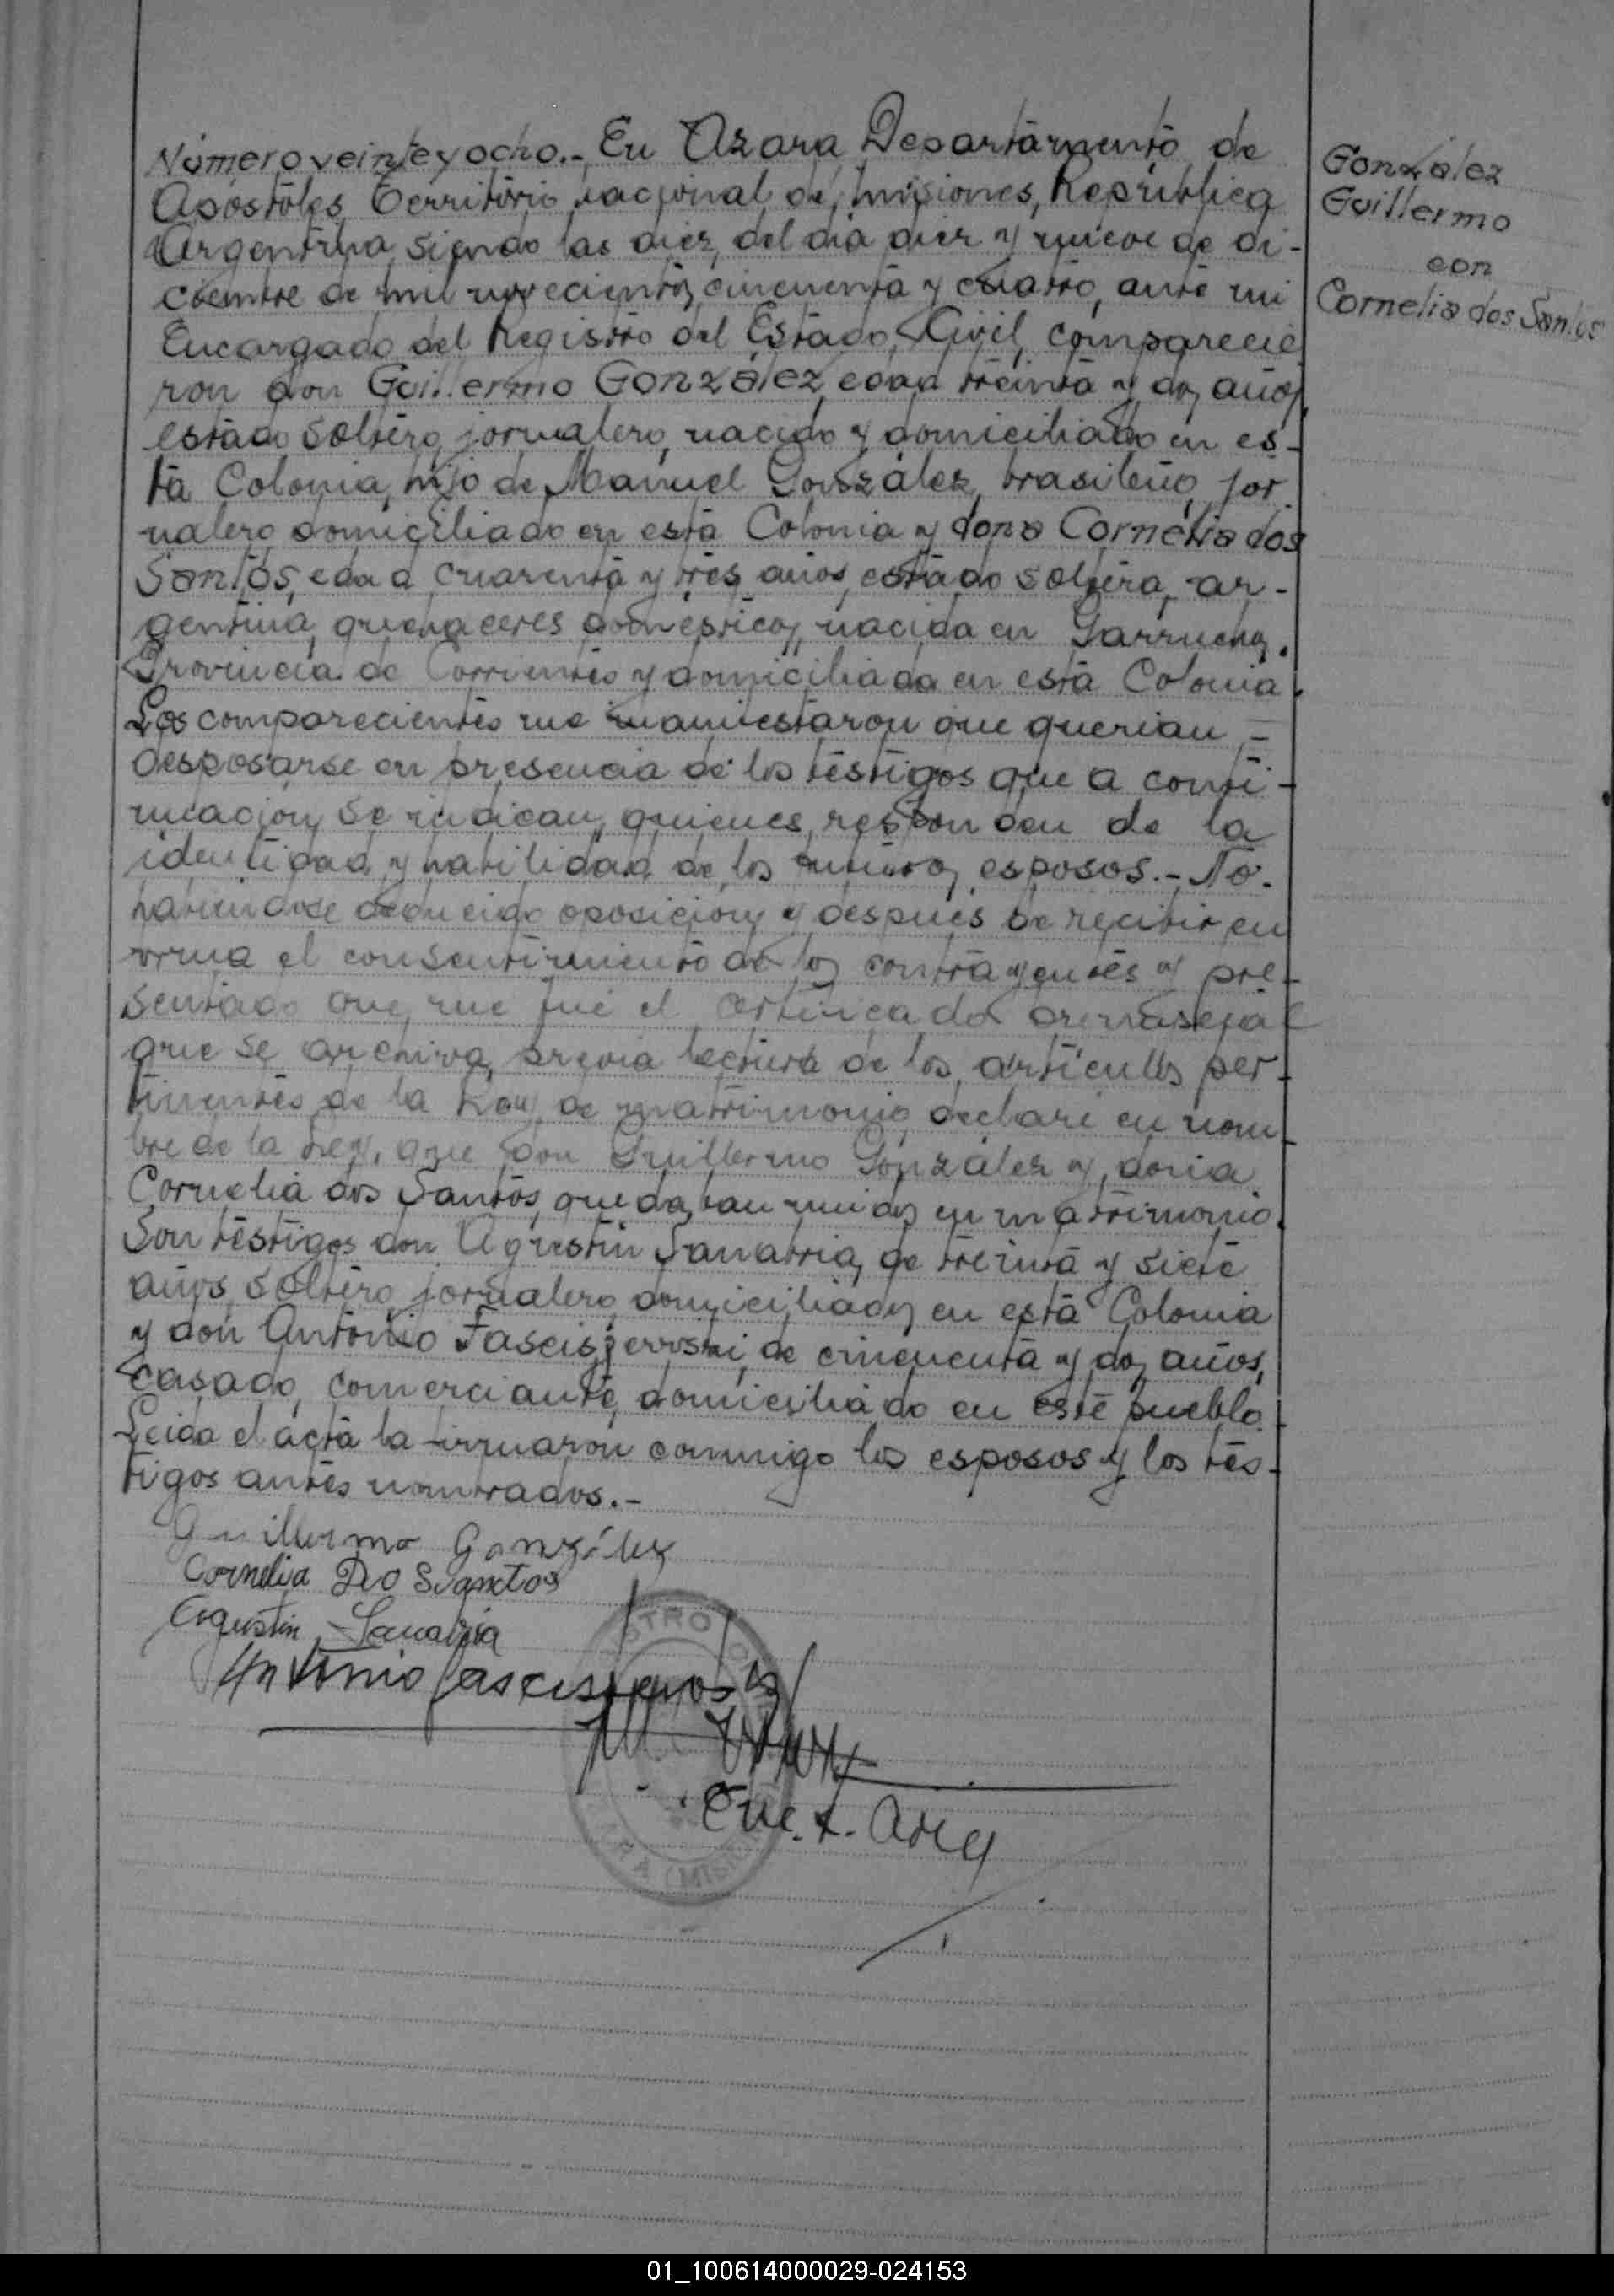 Número veinte y ocho.- En Azara Departamento de
Apóstoles, Territorio nacional de Misiones, República
Argentina, siendo las diez, del dia diez y nueve de di-
ciembre de mil novecientos cincuenta y cuatro, ante mi
Encargado del Registro del Estado Civil, comparecie
ron don Guillermo González, edad treinta y dos años,
estado soltero, jornalero, nacido y domiciliado en es-
ta Colonia, hijo de Manuel González, brasileño, jor
nalero domiciliado en esta Colonia y dona Cornelia dos
Santos, edad cuarenta y tres años, estado soltera, ar-
gentina, quehaceres domésticos, nacida en Garruchos,
Provincia de Corrientes y domiciliada en esta Colonia.
Los comparecientes me manifestaron que querian -
desposarse en presencia de los testigos que a conti-
nuacion se indican, quienes responden de la
identidad y habilidad de los futuros esposos.- No-
habiendose deducido oposicion y despues de recibir en
forma el consentimiento de los contrayentes y pre-
sentado que me fue el certificado prenupcial
que se archiva, previa lectura de los articulos per-
tinentes de la Ley de matrimonio, declaré en nom-
bre de la Ley, que don Guillermo González y doña
Cornelia dos Santos, quedaban unidos en matrimonio.
Son testigos don Agustin Sanabria, de treinta y siete
años, soltero, jornalero, domiciliado, en esta Colonia
y don Antonio de cincuenta y dos años,
casado, comerciante, domiciliado en este pueblo.
Leida el acta la firmaron conmigo los esposos y los tes-
tigos antes nombrados.-
Guillermo González
Cornelia Do Sanctos
Agustin Sanabria
Antonio
Enc. R. Civil
González
Guillermo
con
Cornelia dos Santos
01_100614000029-024153